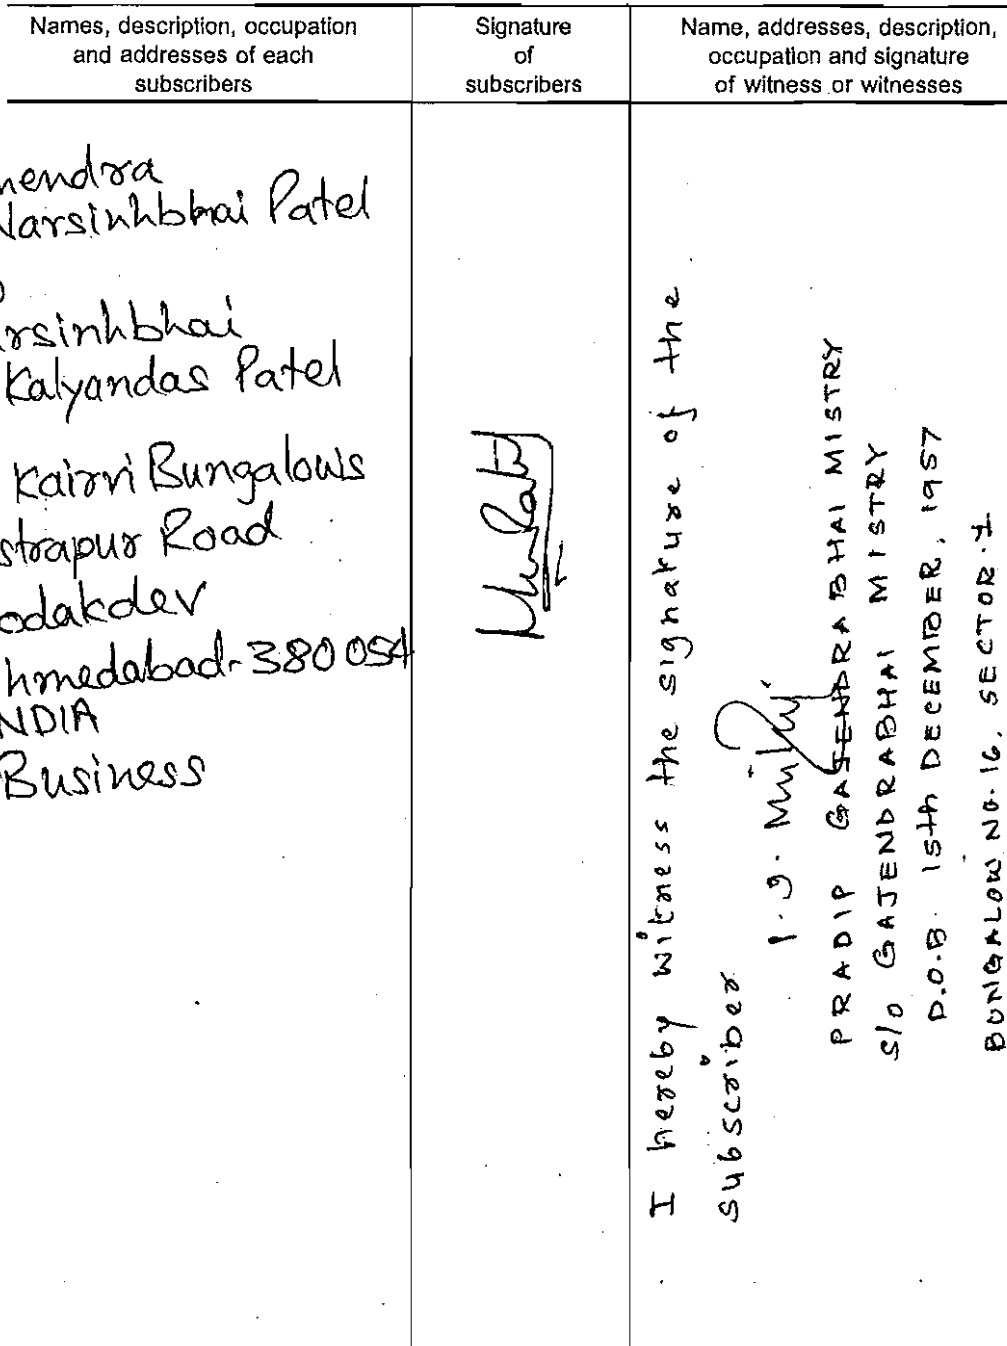 Names, description, occupation
and addresses of each
subscribers
Signature
of
subscribers
Name, addresses, description,
occupation and signature
of witness or witnesses
nendra
Narsinhbhai Patel
rsinhbhai
Kalyandas Patel
Kairvi Bungalows
strapur Road
odakdev
hmedabad-380 054
NDIA
Business
I hereby witness the signature of the
subscriber
PRADIP GAJENDRABHAI MISTRY
S/O GAJENDRABHAI MISTRY
D.O.B. 15th DECEMBER, 1957
BUNGALOW NO. 16, SECTOR-I